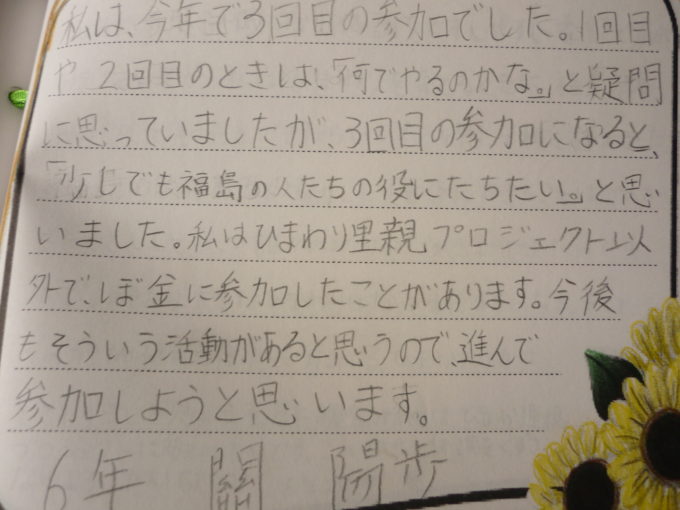 私は、今年で3回目の参加でした。1回目
や2回目のときは、「何でやるのかな。」と疑問
に思っていましたが、3回目の参加になると、
「少しでも福島の人たちの役にたちたい。」と思
いました。私はひまわり里親プロジェクト以
外で、ぼ金に参加したことがあります。今後
もそういう活動があると思うので、進んで
参加しようと思います。
6年 關 陽歩